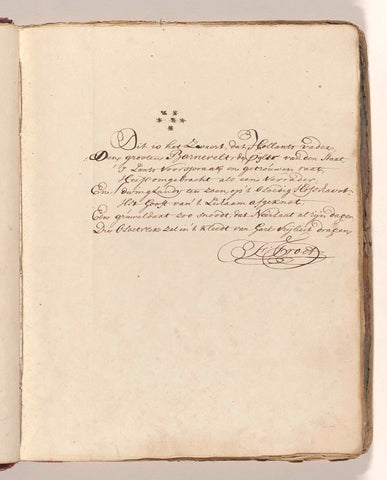 Dit is het Zwaert, dat Hollants vader,
Den grooten Barnevelt, de pyler van den Staat
's Lants Voorspraak en getrouwen raat,
Heeft omgebracht als een Verrader
En, om ten toon, op 't bloedig Hofschavot
Het hooft van 't Lichaam afgeknot.
Een gruweldaat zoo snoodt, dat Neerlant al zijn dagen
Die Bloetvlek zal in 't kleedt van haer dragen
Troost